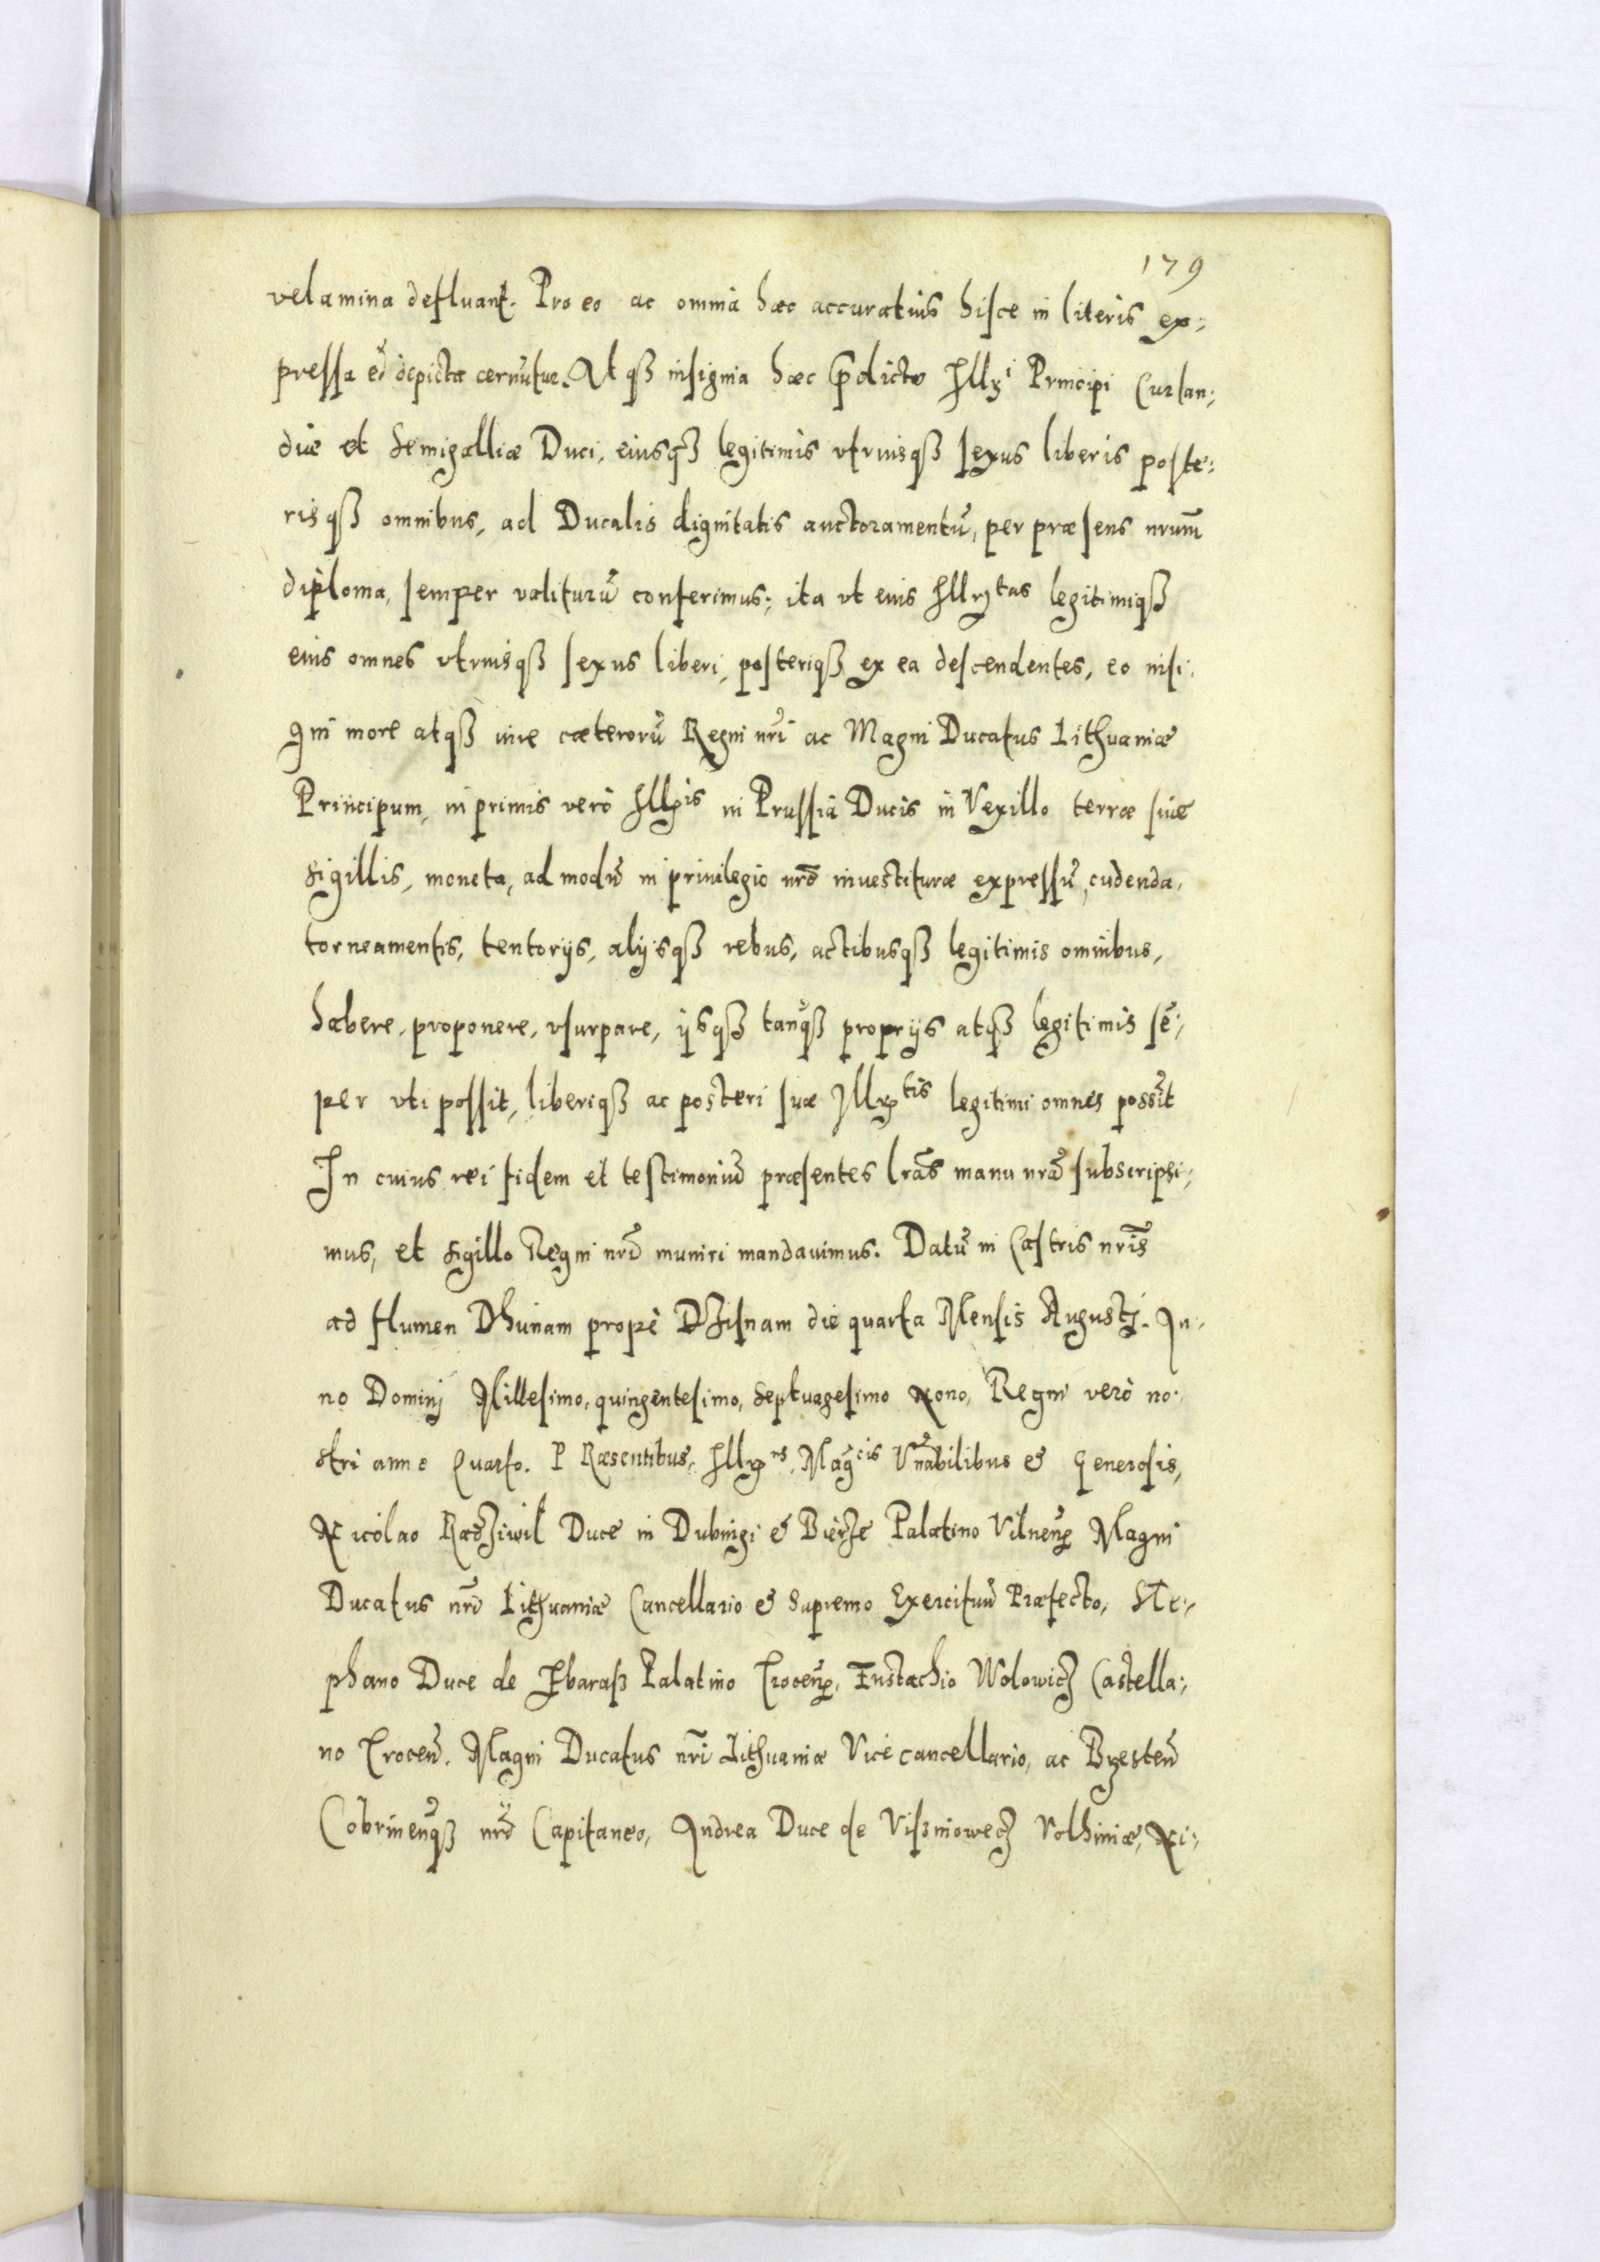 179
velamina defluant. Pro eo ac omnia hæc accuratius hisce in literis ex:
pressa et depicta cernūtur. Atqꝫ insignia hæc p̄dicto Illri Principi Curlan:
diæ et Semigalliæ Duci, eiusqꝫ legitimis vtriusqꝫ sexus liberis poste:
risqꝫ omnibus, ad Ducalis dignitatis auctoramentū, per præsens nrum̄
diploma, semper valiturū conferimus; ita vt eius Illrtas legitimiqꝫ
eius omnes vtriusqꝫ sexus liberi, posteriqꝫ ex ea descendentes, eo insi:
gni more atqꝫ iure cæterorū Regni nr̄i ac Magni Ducatus Lithuaniæ
Principum, in primis verò Illris in Prussia Ducis in Vexillo terræ suæ
sigillis, moneta, ad modū in priuilegio nrō inuestituræ expressū, cudenda,
torneamentis, tentorijs, alijsqꝫ rebus, actibusqꝫ legitimis omnibus,
habere, proponere, vsurpare, ijsqꝫ tanqꝫ proprijs atqꝫ legitimis sē:
per vti possit, liberiqꝫ ac posteri suæ Illrtis legitimi omnes possīt
In cuius rei fidem et testimoniū præsentes lrās manu nrā subscripsi:
mus, et sigillo Regni nrī muniri mandauimus. Datū in Castris nrīs
ad flumen Dhunam propè Dzisnam die quarta Mensis Augustj. An:
no Dominj Millesimo, quingentesimo, septuagesimo Nono, Regni verò no:
stri anno Quarto. Præsentibus, Illrns, Mag̃cis Vn̄abilibus & Generosis,
Nicolao Radziwil Duce in Dubingi & Bierze Palatino Vilnen̄ Magni
Ducatus nrī Lithuaniæ Cancellario & supremo Exercituū Præfecto, Ste:
phano Duce de Zbaraß Palatino Trocen̄, Eustachio Wolowicz Castella:
no Trocen̄. Magni Ducatus nr̄i Lithuaniæ Vicecancellario, ac Brzesten̄
Cobrinen̄qꝫ nrō Capitaneo, Andrea Duce de Vißniowecz Volhiniæ, Ni: